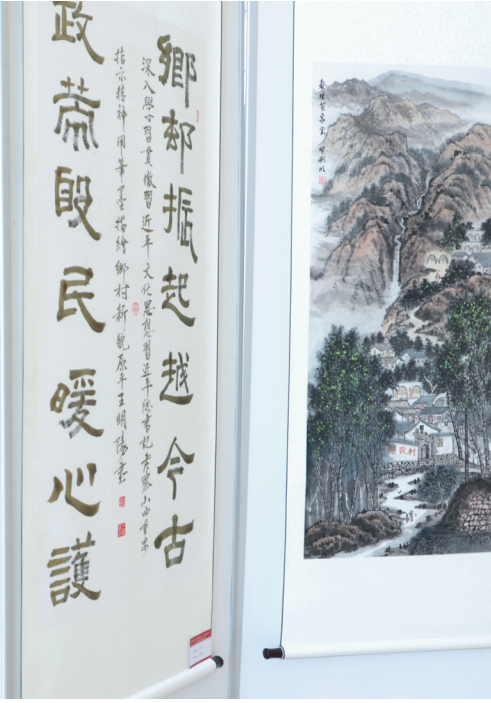 鄉邨振起越今古
深入學習貫徹習近平文化思想習近平總書記考察山西重要
指示精神用筆墨描繪鄉村新貌原平王明陽書
政策殷民暖心護